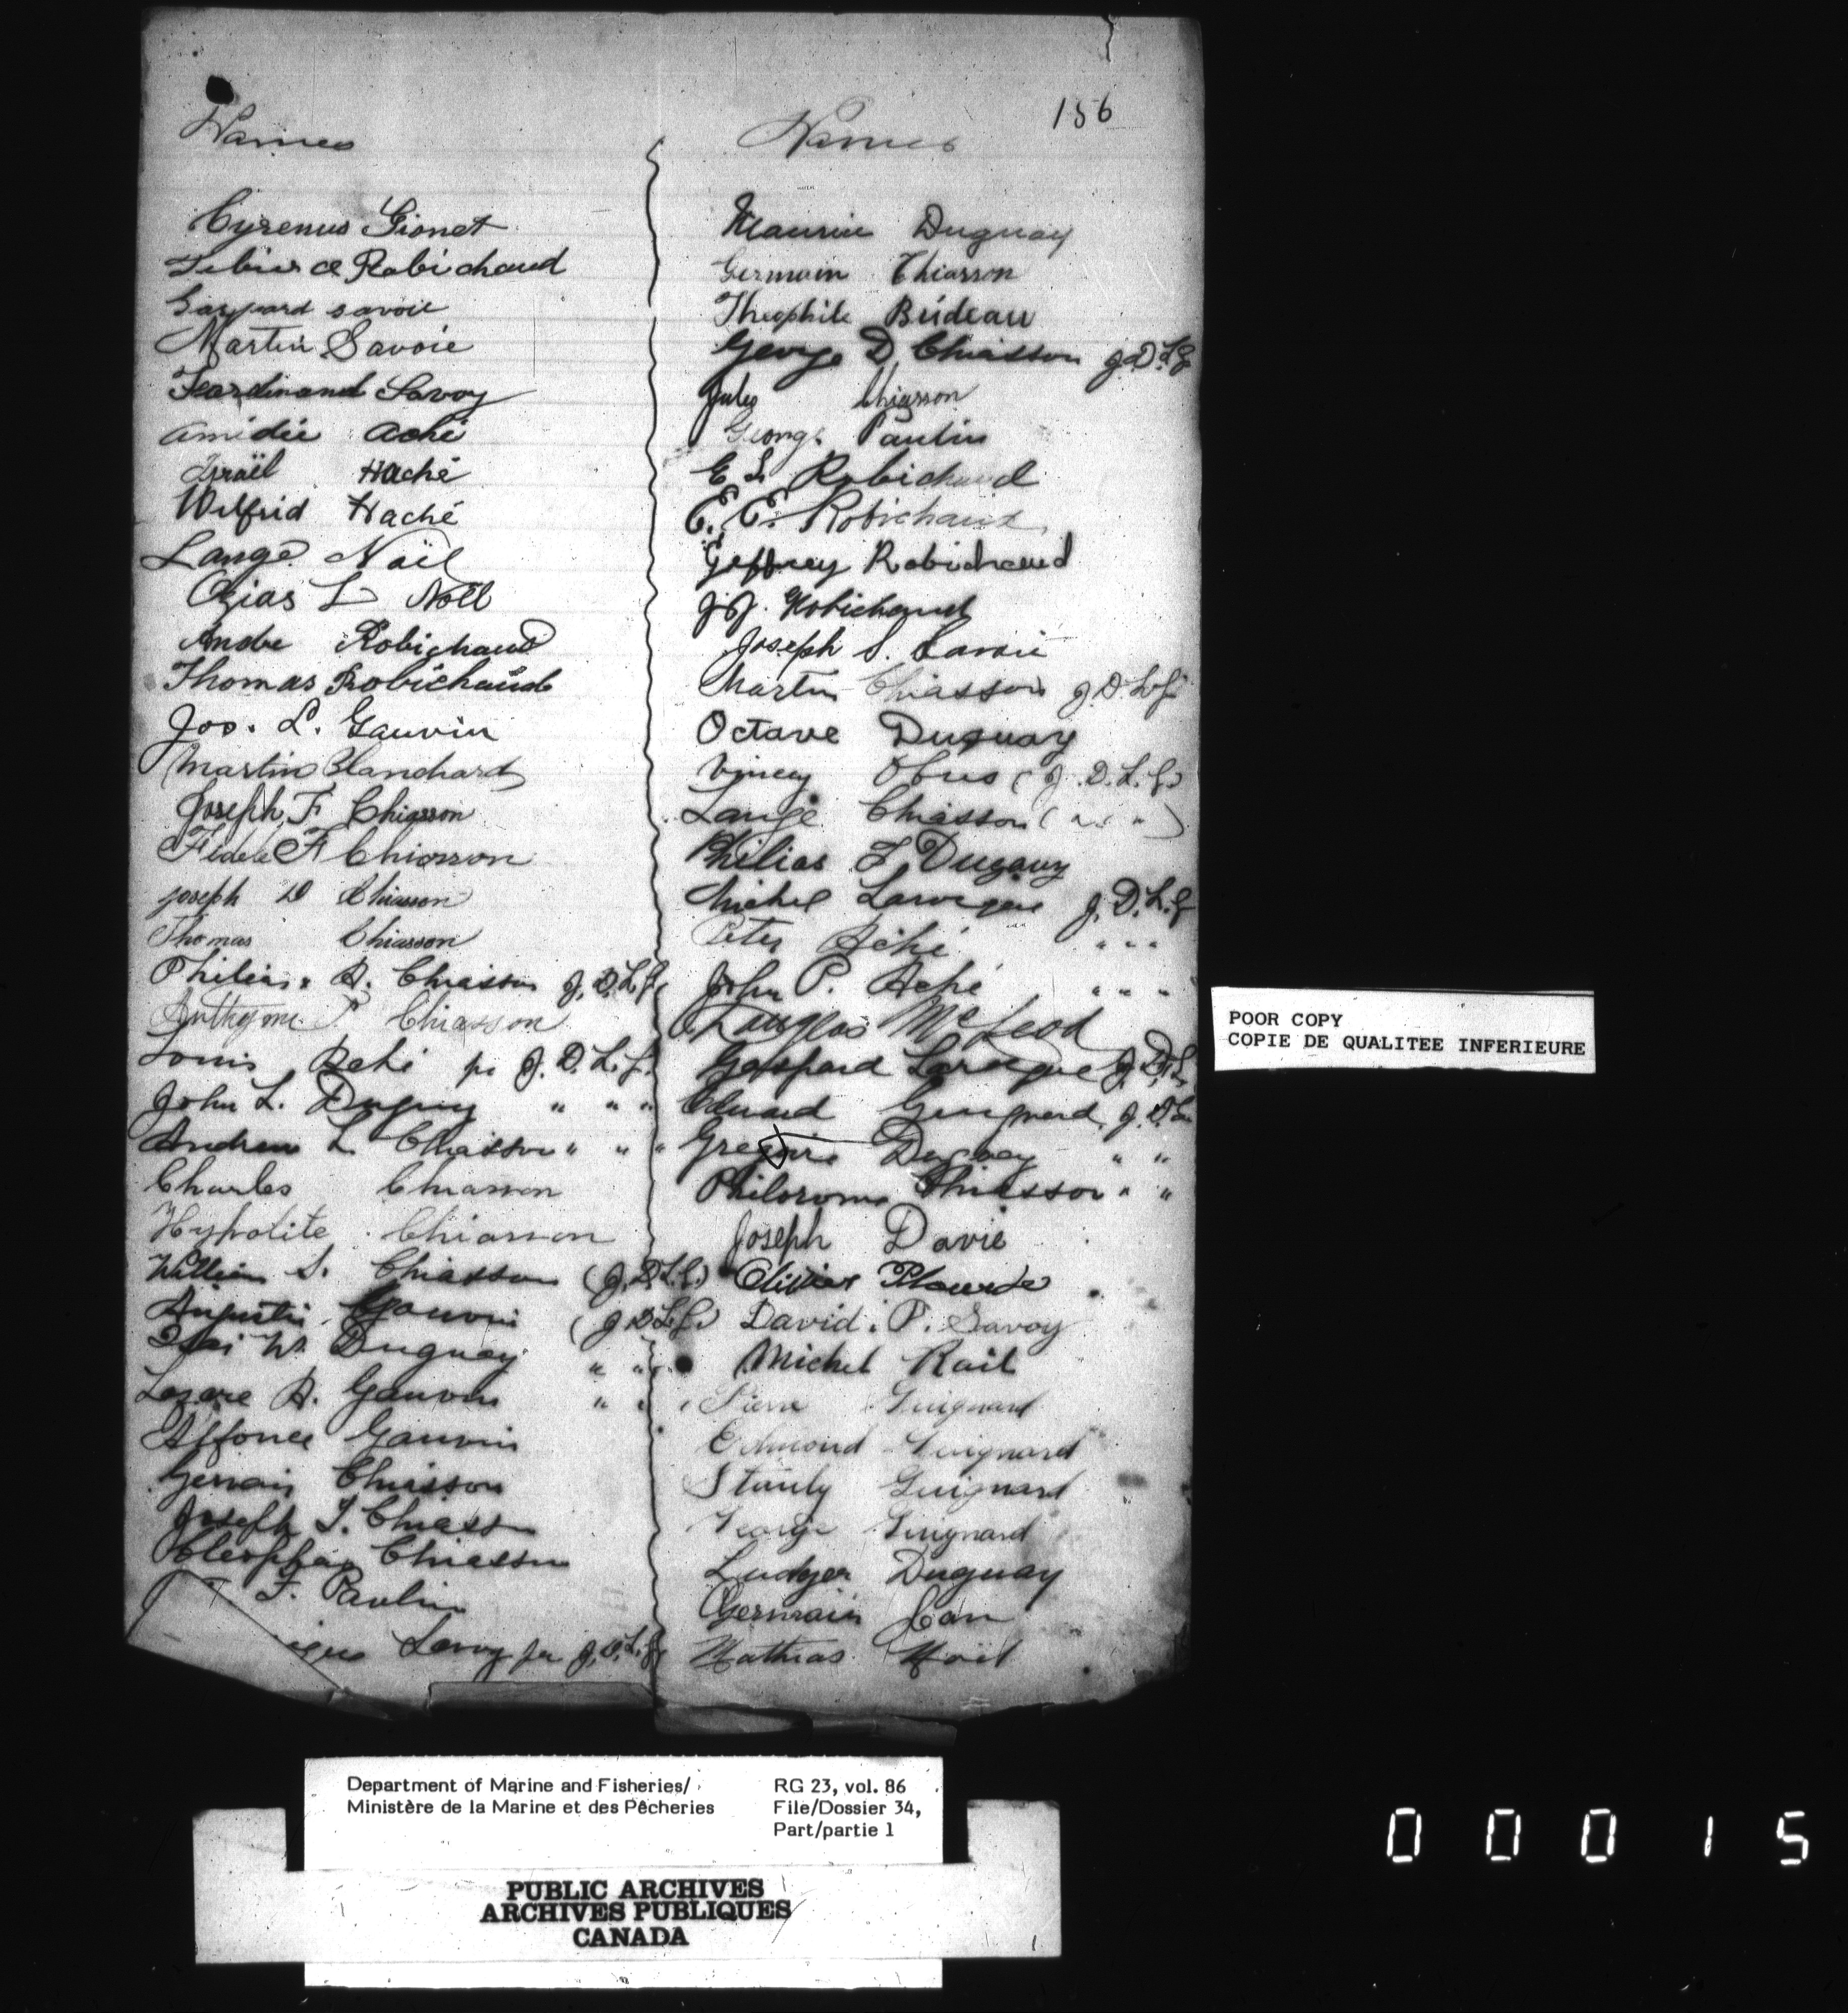 156
Names
Cyrenus Gionet
Robichaud
Gaspard savoie
Martin Savoie
Ferdinand Savoy
Amidie Aché
Israël Haché
Wilfrid Haché
Lange Noël
Ozias L Noël
Andre Robichaud
Thomas Robichaud
Jos. L. Gauvin
Martin Blanchard
Joseph F Chiasson
Fidele F Chiasson
joseph D Chiasson
Thomas Chiasson
Philias A. Chiasson J.D.L.G.
Anthyme P Chiasson
Louis Aché pr J.D.L.G.
John L. Duguay " " "
Andrew L Chiasson " " "
Charles Chiasson
Hypolite Chiasson
William S. Chiasson (J.D.L.G.)
Augustin Gauvin (J.D.L.G.)
W. Duguay " "
Lazare A. Gauvin " "
Alfonce Gauvin
Gervais Chiasson
Joseph J. Chiasson
Cleophas Chiasson
F. Paulin
Savoy per J.D.L.G.
Names
Maurice Duguay
Germain Chiasson
Theophile Brideau
George D. Chiasson J.D.L.G
Jules Chiasson
George Paulin
E L Robichaud
E. E. Robichaud
Geffrey Robichaud
J.J. Robichaud
Joseph S. Savoie
Martin Chiasson J.D.L.G.
Octave Duguay
Vincey Obus (J.D.L.G.)
Lange Chiasson ( " " " )
Philias F. Duguay
Michel Larocque J.D.L.G
Peter Aché " " "
John P. Aché " " "
Douglas McLeod
Gaspard Larocque J.D.L.
Eduard Guignard J.D.L.
Gregoire Duguay " "
Philorome Chiasson " "
Joseph Davie
Olivier Plourde
David. P. Savoy
Michel Rail
Pierre Guignard
Edmond Guignard
Stanly Guignard
George Guignard
Ludger Duguay
Germain Jean
Mathias Noël
POOR COPY
COPIE DE QUALITEE INFERIEURE
Department of Marine and Fisheries/
Ministère de la Marine et des Pêcheries
RG 23, vol. 86
File/Dossier 34,
Part/partie 1
PUBLIC ARCHIVES
ARCHIVES PUBLIQUES
CANADA
00015